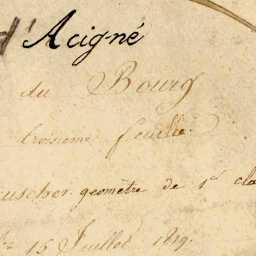 d'Acigné
du Bourg
troisieme feuille.
géomètre de 1re cla
15 Juillet 1819.